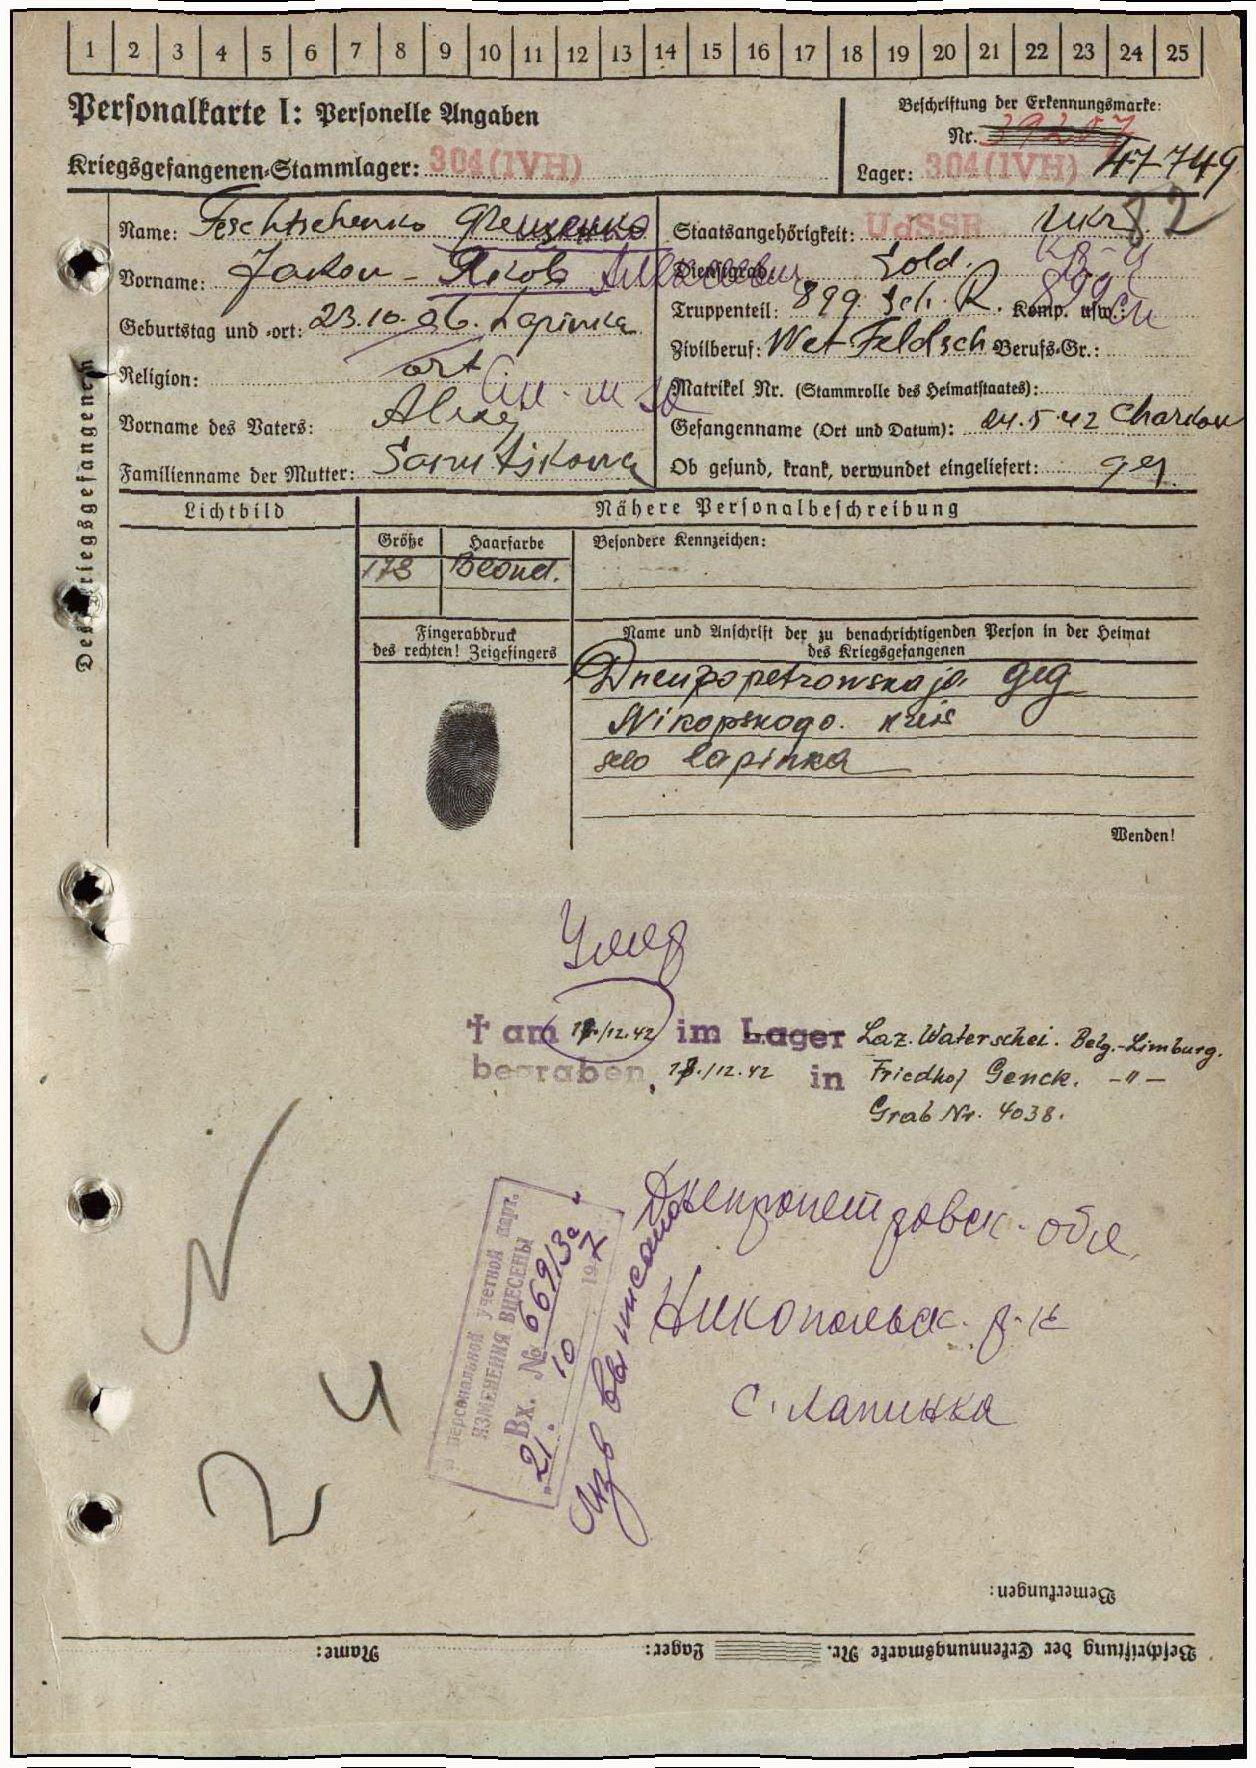 1 2 3 4 5 6 7 8 9 10 11 12 13 14 15 16 17 18 19 20 21 22 23 24 25
Personalkarte I: Personelle Angaben
Beschriftung der Erkennungsmarke:
Nr. 39257
Kriegsgefangenen-Stammlager: 304 (IVH)
Lager: 304 (IVH) 47749
82
Des Kriegsgefangenen
Name: Feschtschenko Фещенко
Vorname: Jakow - Яков Алексеевич
Geburtstag und -ort: 23.10.06. Lapinka
ort
Religion:
Vorname des Vaters: Alexej
Familienname der Mutter:
Staatsangehörigkeit: UdSSR Ukr.
Dienstgrad: Sold. кр-ц
Truppenteil: 899. Sch. R. Komp. usw.: 899 сп
Zivilberuf: Wet Feldsch Berufs-Gr.:
Matrikel Nr. (Stammrolle des Heimatstaates):
Gefangenname (Ort und Datum): 24.5.42 Charkow
Ob gesund, krank, verwundet eingeliefert: ges.
Lichtbild
Nähere Personalbeschreibung
Größe Haarfarbe Besondere Kennzeichen:
173 Blond.
Fingerabdruck
des rechten! Zeigefingers
Name und Anschrift der zu benachrichtigenden Person in der Heimat
des Kriegsgefangenen
Dnenpopetrowskaja geg
Nikopskogo. kreis
selo Lapinka
Wenden!
Умер
† am 17./12.42 im Lager Laz. Waterschei. Belg.-Limburg.
begraben, 18./12.42 in Friedhof Genck. -"-
Grab Nr. 4038.
Днепропетровск. обл.
Никопольск. р-н
с. Лапинка
В персональной учетной карт.
ИЗМЕНЕНИЯ ВНЕСЕНЫ
Вх. № 66913с
"21" 10 1947
Изв выписано
2 4
Bemerkungen:
Beschriftung der Erkennungsmarke Nr. Lager: Name: